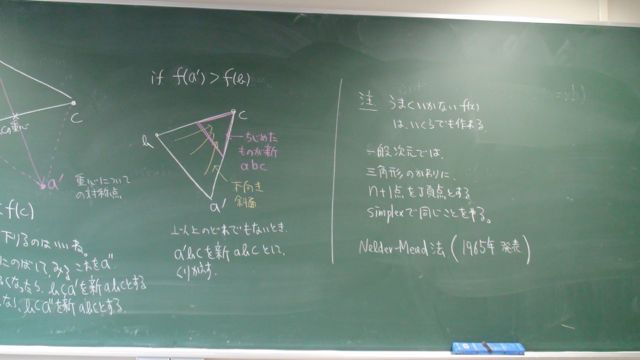 Cの重心
C
a'
重心についての対称点
f(c)
下りるのはいいね。
にのばしてみる これをa''
なったら, bca'を新abcとする
なら, bca''を新abcとする
if f(a') > f(b)
b
c
a'
ちぢめた
ものが新
abc
下向き
斜面
上以上のどれでもないとき,
a'bcを新abcとして,
くりかえす.
注 うまくいかないf(x)
は、いくらでも作れる
一般次元では,
三角形のかわりに,
n+1点を頂点とする
simplexで同じことをする。
Nelder-Mead法 (1965年発表)